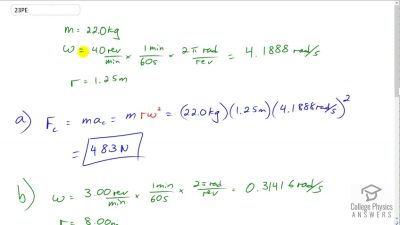 23PE
m = 22.0 kg
ω = 40 rev/min × 1 min/60s × 2π rad/rev = 4.1888 rad/s
r = 1.25 m
a) Fc = mac = m r ω² = (22.0 kg)(1.25 m)(4.1888 rad/s)²
= 483 N
b) ω = 3.00 rev/min × 1 min/60s × 2π rad/rev = 0.31416 rad/s
r = 8.00m
College Physics
ANSWERS